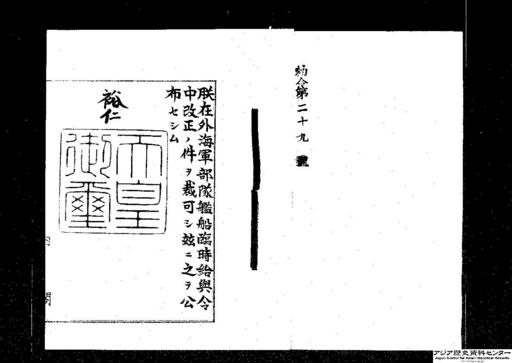 勅令第二十九號
朕在外海軍部隊艦船臨時給與令
中改正ノ件ヲ裁可シ玆ニ之ヲ公
布セシム
裕仁
天皇
御璽
内閣
アジア歴史資料センター
Japan Center for Asian Historical Records